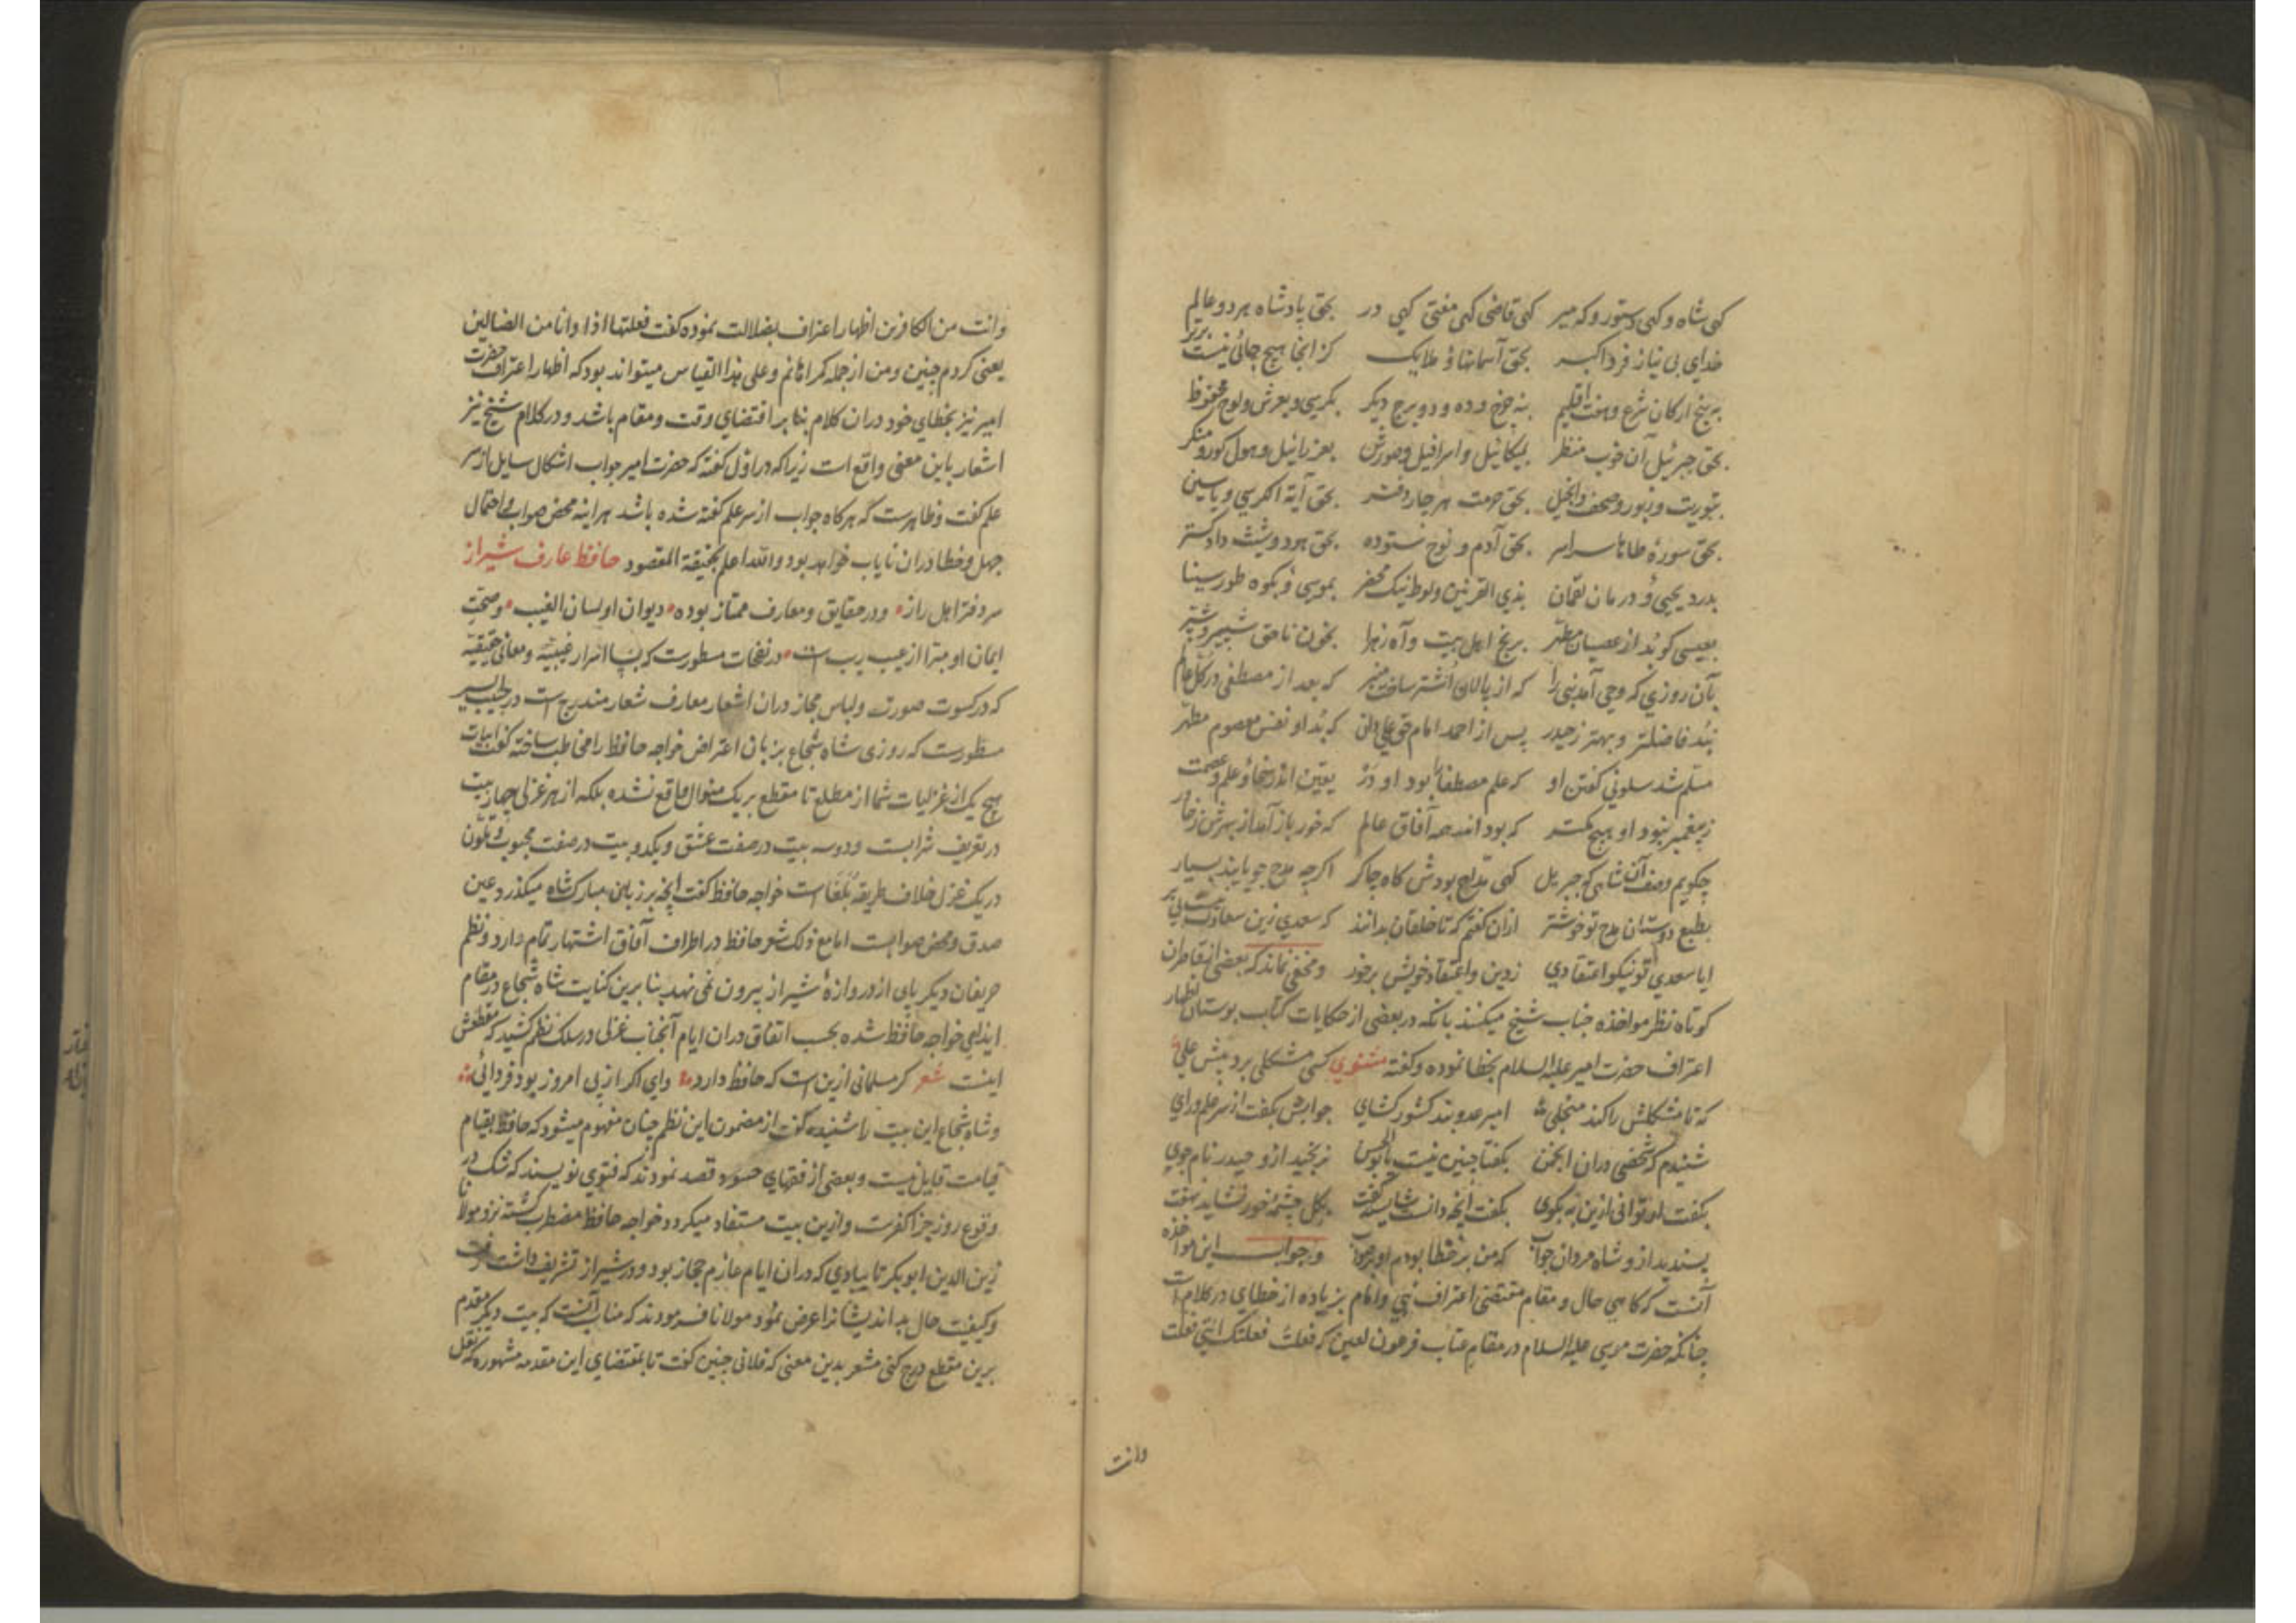 کهی شاه و کهی دستور و که میر کهی قاضی کهی مفتی کهی در بحق پادشاه هر دو عالم
خدای بی نیاز فرد اکبر بحق آسمانها و ملایک کز انجا هیچ جائی نیست برتر
به پنج ارکان شرع و هفت اقلیم بنه چرخ و ده و دو برج دیگر بکرسی و بعرش و لوح محفوظ
بحق جبرئیل آن خوب منظر بمیکائیل و اسرافیل و صورش بعزرائیل و هول کور و منکر
بتوریت و زبور و صحف و انجیل بحق حرمت هر چار دفتر بحق آیة الکرسی و یاسین
بحق سورهٔ طاها سراسر بحق آدم و نوح ستوده بحق هود و شیث دادکستر
بدرد یحیی و درمان لقمان بذی القرنین و لوط نیک محضر بموسی و بکوه طور سینا
بعیسی کو بُد از عصیان مطهر برنج اهل بیت و آه زهرا بخون ناحق شبیر و شبر
بآن روزی که وحی آمد نبی را که از پالان اشتر ساخت منبر که بعد از مصطفی در کل عالم
نبُد فاضلتر و بهتر ز حیدر پس از احمد امام حق علی دان که بُد او نفس معصوم مطهر
مسلم شد سلونی کفتن او که علم مصطفی را بود او در یقین اندر سخا و علم و عصمت
ز پیغمبر نبود او هیچ کمتر که بود اندر همه آفاق عالم که خور باز آمد از بهرش ز خاور
چکویم وصف آن شاهی که جبریل کهی مداح بودش کاه چاکر اکرچه مدح جویایند بسیار
بطبع دوستان مدح تو خوشتر ازان کفتم که تا خلقان بدانند که سعدی زین سعادت نیست بی بر
ایا سعدی تو نیکو اعتقادی ز دین و اعتقاد خویش برخور و مخفی نماند که بعضی از قاصران
کوتاه نظر مواخذه جناب شیخ میکنند بانکه در بعضی از حکایات کتاب بوستان اظهار
اعتراف حضرت امیر علیه السلام بخطا نموده و کفته مثنوی کسی مشکلی برد پیش علی
که تا مشکلش را کند منجلی امیر عدو بند کشور کشای جوابش بکفت از سر علم و رای
شنیدم که شخصی دران انجمن بکفتا چنین نیست یا بوالحسن نرنجید ازو حیدر نام جوی
بکفت ار توانی ازین به بکوی بکفت انچه دانست و شایسته کفت بکل چشمهٔ خور نشاید نهفت
پسندید ازو شاه مردان جواب که من بر خطا بودم او بر صواب و جواب این مواخذه
آنست که کاهی حال و مقام مقتضی اعتراف نبی و امام بزیاده از خطای در کلام است
چنانکه حضرت موسی علیه السلام در مقام عتاب فرعون لعین که فعلت فعلتک التی فعلت
وانت
وانت من الکافرین اظهار اعتراف بضلالت نموده کفت فعلتها اذا وانا من الضالین
یعنی کردم چنین و من از جمله کمراهانم و علی هذا القیاس میتواند بود که اظهار اعتراف حضرت
امیر نیز بخطای خود دران کلام بنا بر اقتضای وقت و مقام باشد و در کلام شیخ نیز
اشعار باین معنی واقع است زیرا که در اول کفته که حضرت امیر جواب اشکال سایل از سر
علم کفت و ظاهرست که هرکاه جواب از سر علم کفته شده باشد هراینه محض صواب و احتمال
جهل و خطا دران نایاب خواهد بود والله اعلم بحقیقة المقصود حافظ عارف شیراز
سر دفتر اهل راز و در حقایق و معارف ممتاز بوده دیوان او لسان الغیب و صحت
ایمان او مبرا از عیب و ریب است در نفحات مسطورست که بسا اسرار غیبیه و معانی حقیقیه
که در کسوت صورت و لباس مجاز دران اشعار معارف شعار مندرج است در حبیب السیر
مسطورست که روزی شاه شجاع بزبان اعتراض خواجه حافظ را مخاطب ساخته کفت ابیات
هیچ یک از غزلیات شما از مطلع تا مقطع بر یک منوال واقع نشده بلکه از هر غزلی چهار بیت
در تعریف شرابست و دو سه بیت در صفت عشق و یک دو بیت در صفت محبوب و تلون
در یک غزل خلاف طریقه بلغاست خواجه حافظ کفت انچه بر زبان مبارک شاه میکذرد عین
صدق و محض صوابست اما مع ذلک شعر حافظ در اطراف آفاق اشتهار تمام دارد و نظم
حریفان دیکر پای از دروازهٔ شیراز بیرون نمی نهد بنا برین کنایت شاه شجاع در مقام
ایذای خواجه حافظ شده بحسب اتفاق دران ایام آنجناب غزلی در سلک نظم کشید که مقطعش
اینست شعر کر مسلمانی ازین است که حافظ دارد وای اکر از پی امروز بود فردائی
و شاه شجاع این بیت را شنیده کفت از مضمون این نظم چنان مفهوم میشود که حافظ بقیام
قیامت قایل نیست و بعضی از فقهای حسود قصد نمودند که فتوی نویسند که شک در
وقوع روز جزا کفرست و ازین بیت مستفاد میکردد خواجه حافظ مضطرب کشته نزد مولانا
زین الدین ابوبکر تایبادی که دران ایام عازم حجاز بود و در شیراز تشریف داشت رفت
و کیفیت حال بد اندیشانرا عرض نمود مولانا فرمودند که مناسب آنست که بیت دیکر مقدم
برین مقطع درج کنی مشعر بدین معنی که فلانی چنین کفت تا بمقتضای این مقدمه مشهوره که نقل